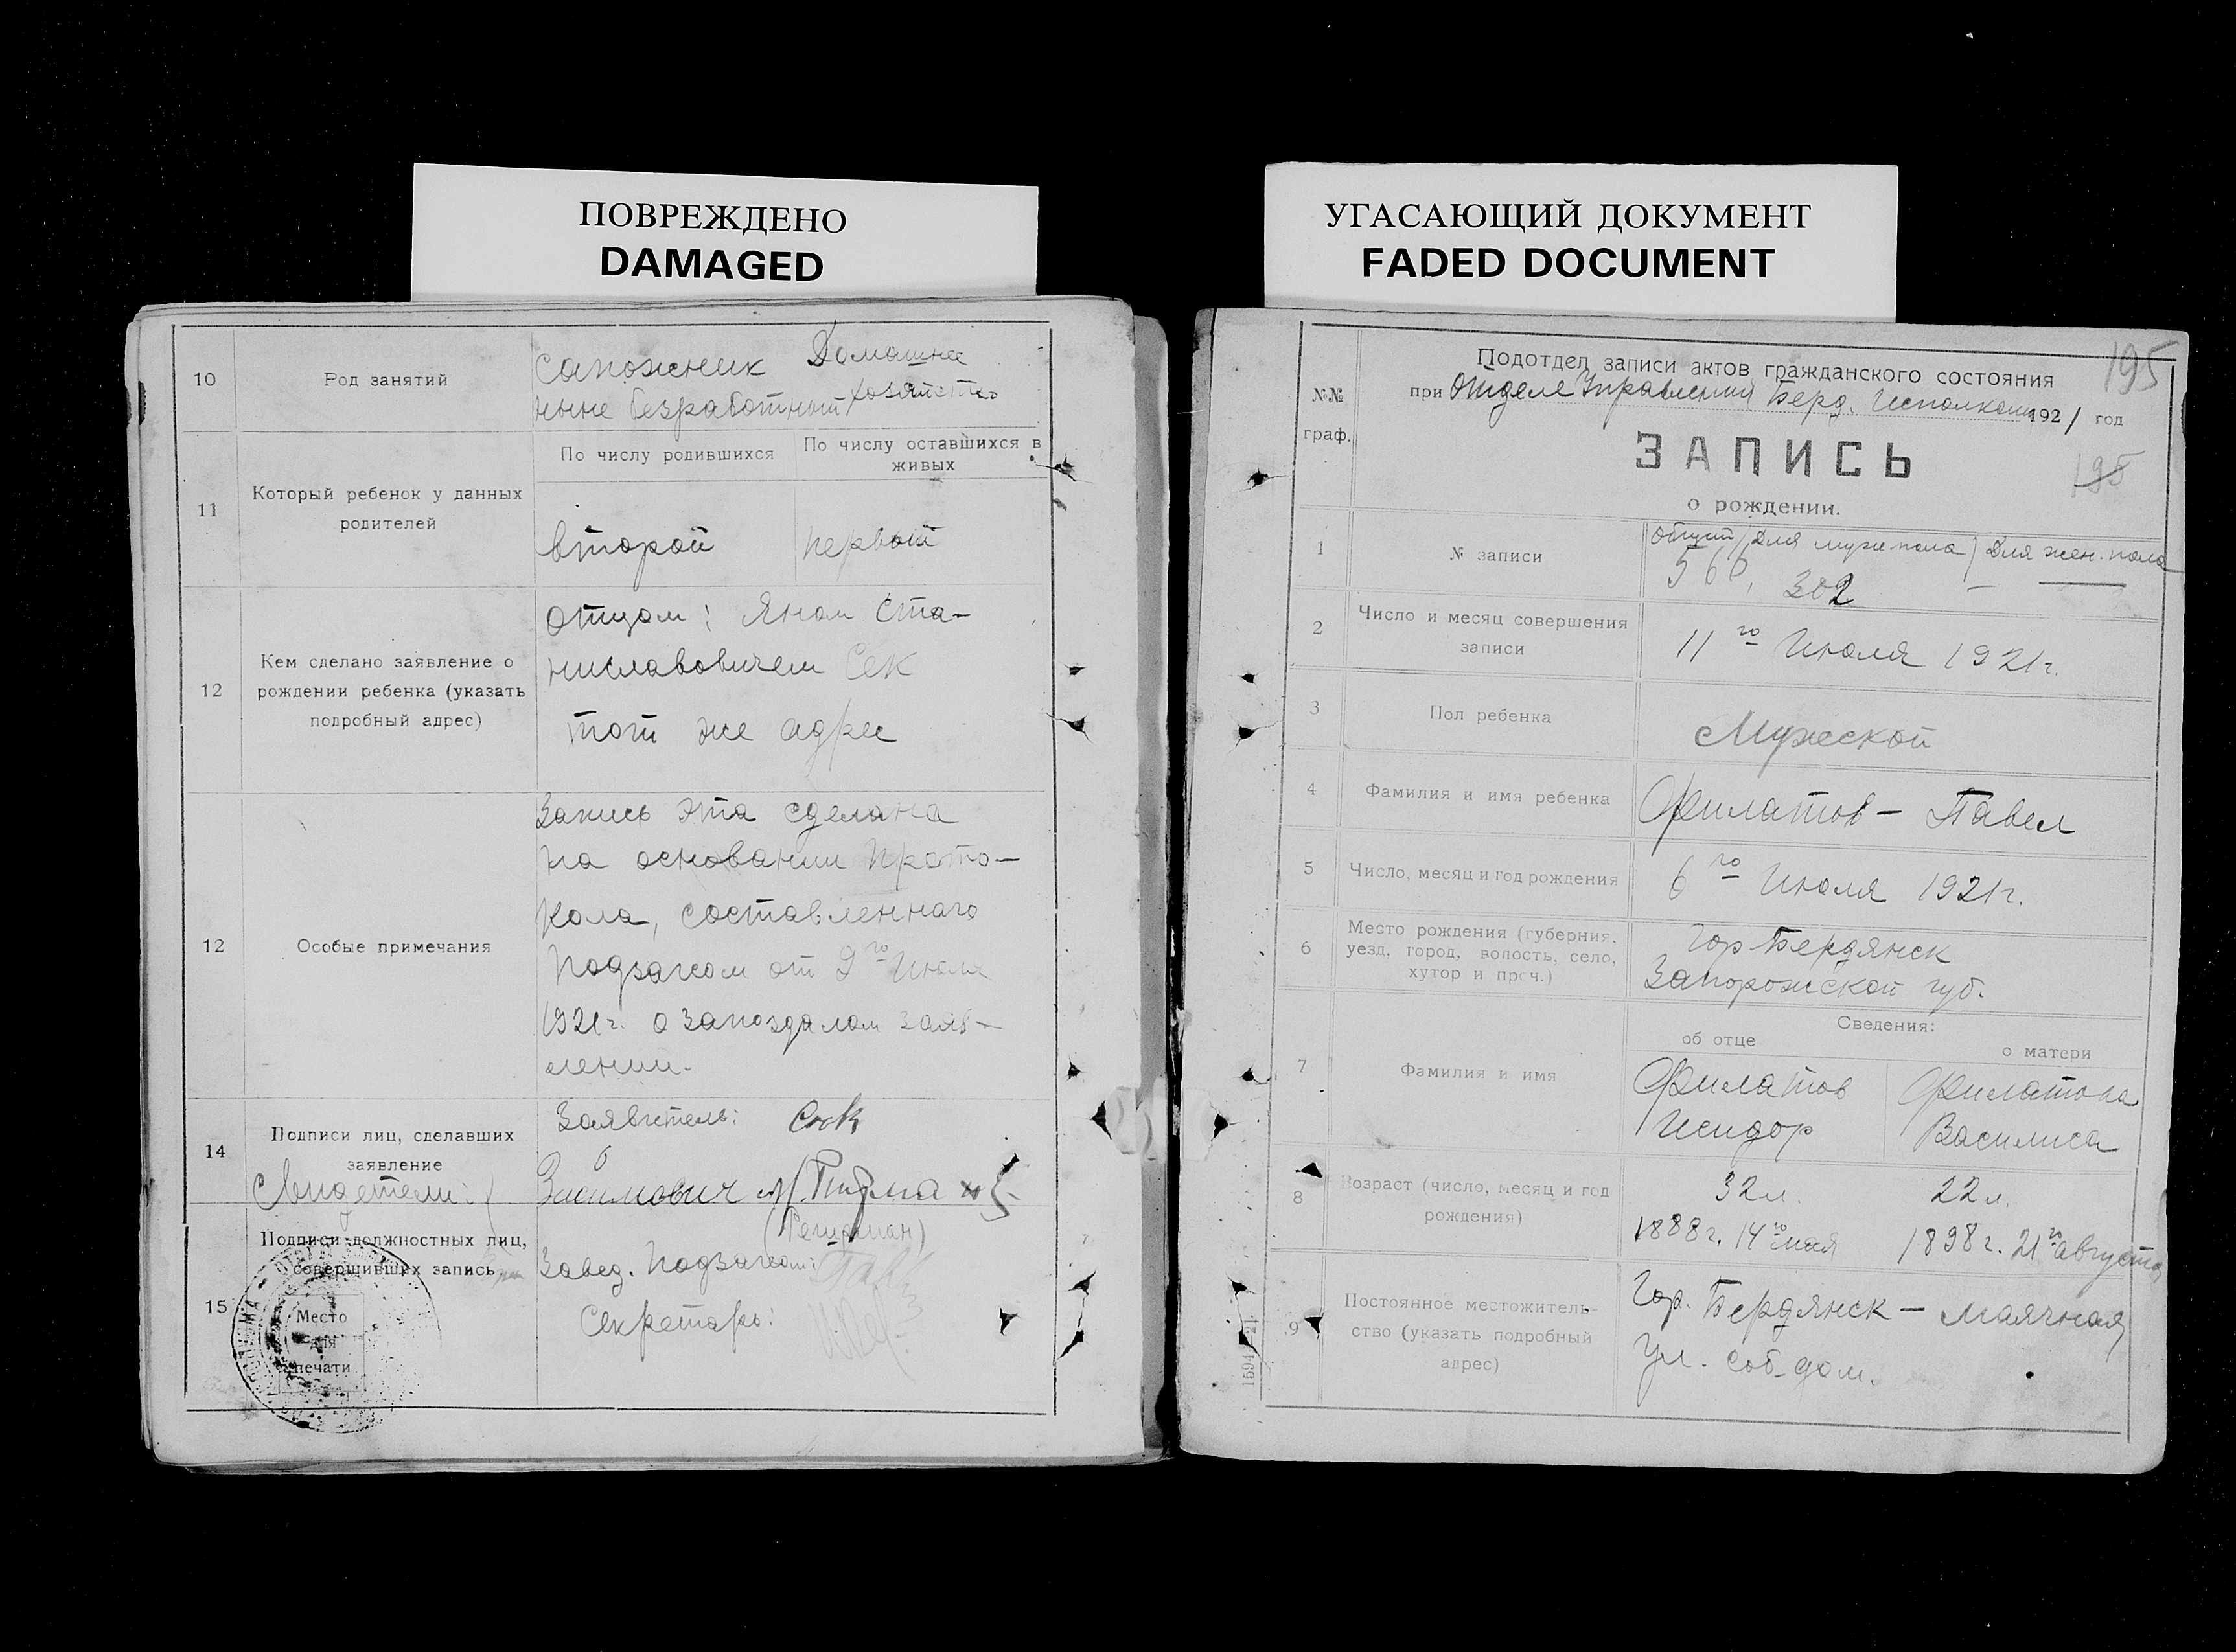 ПОВРЕЖДЕНО
DAMAGED
10
Род занятий
сапожник
ныне безработный
Домашнее
хозяйство
11
Который ребенок у данных
родителей
По числу родившихся
По числу оставшихся в
живых
второй
первый
12
Кем сделано заявление о
рождении ребенка (указать
подробный адрес)
Отцом: Яном Ста-
ниславовичем Сек
тот же адрес
12
Особые примечания
Запись эта сделана
на основании Прото-
кола, составленнаго
Подзагсом от 9го Июля
1921г. о запоздалом заяв-
лении.
14
Подписи лиц, сделавших
заявление
Свидетели:
Заявитель:
15
Подписи должностных лиц,
совершивших запись
Место
для
печати
Завед. Подзагсом:
Секретарь:
УГАСАЮЩИЙ ДОКУМЕНТ
FADED DOCUMENT
195
№№
граф.
Подотдел записи актов гражданского состояния
при Отделе Управления Берд. Исполкома 1921 год
ЗАПИСЬ
195
о рождении.
1
№ записи
Общий / Для муж. пола / Для жен. пола
566, 302 — —
2
Число и месяц совершения
записи
11го Июля 1921г.
3
Пол ребенка
Мужской
4
Фамилия и имя ребенка
Филатов — Павел
5
Число, месяц и год рождения
6го Июля 1921г.
6
Место рождения (губерния,
уезд, город, волость, село,
хутор и проч.)
Гор Бердянск
Запорожской губ.
7
Фамилия и имя
Сведения:
об отце
о матери
Филатов
Исидор
Филатова
Василиса
8
Возраст (число, месяц и год
рождения)
32л.
1888г. 14го мая
22л.
1898г. 21го августа
9
Постоянное местожитель-
ство (указать подробный
адрес)
Гор. Бердянск — Маячная
Ул. соб. дом.